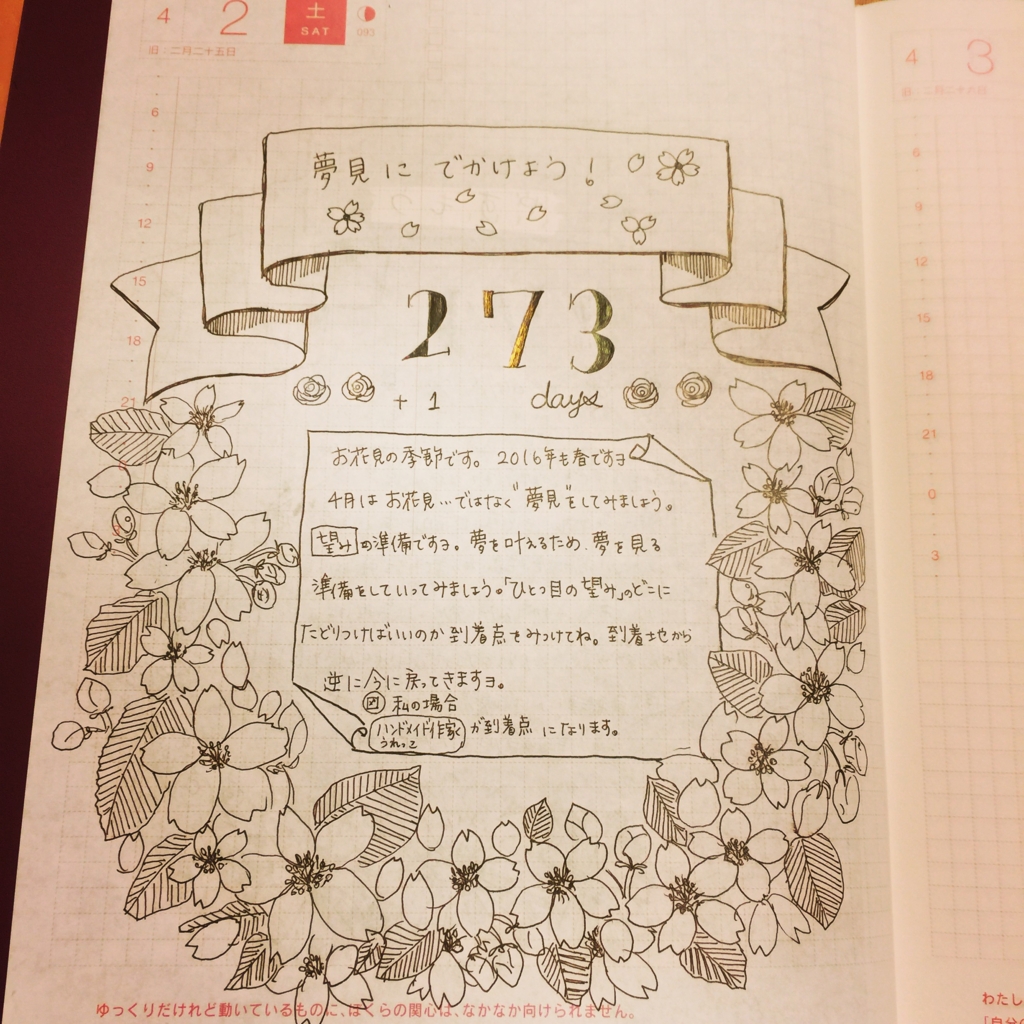 4 2 土 SAT 093
旧:二月二十五日
6
9
12
15
18
21
夢見に でかけよう!
273
+1 days
お花見の季節です。2016年も春ですヨ
4月は お花見…ではなく"夢見"をしてみましょう。
望みの準備ですヨ。夢を叶えるため、夢を見る
準備をしていってみましょう。「ひとつ目の望み」のどこに
たどりつけばいいのか 到着点をみつけてね。到着地から
逆に今に戻ってきますヨ。
図 私の場合
ハンドメイド作家 が到着点 になります。
うれって
ゆっくりだけれど動いているものに、ぼくらの関心は、なかなか向けられません。
4 3
旧:二月二十六日
6
9
12
15
18
21
0
3
わたし
「自分